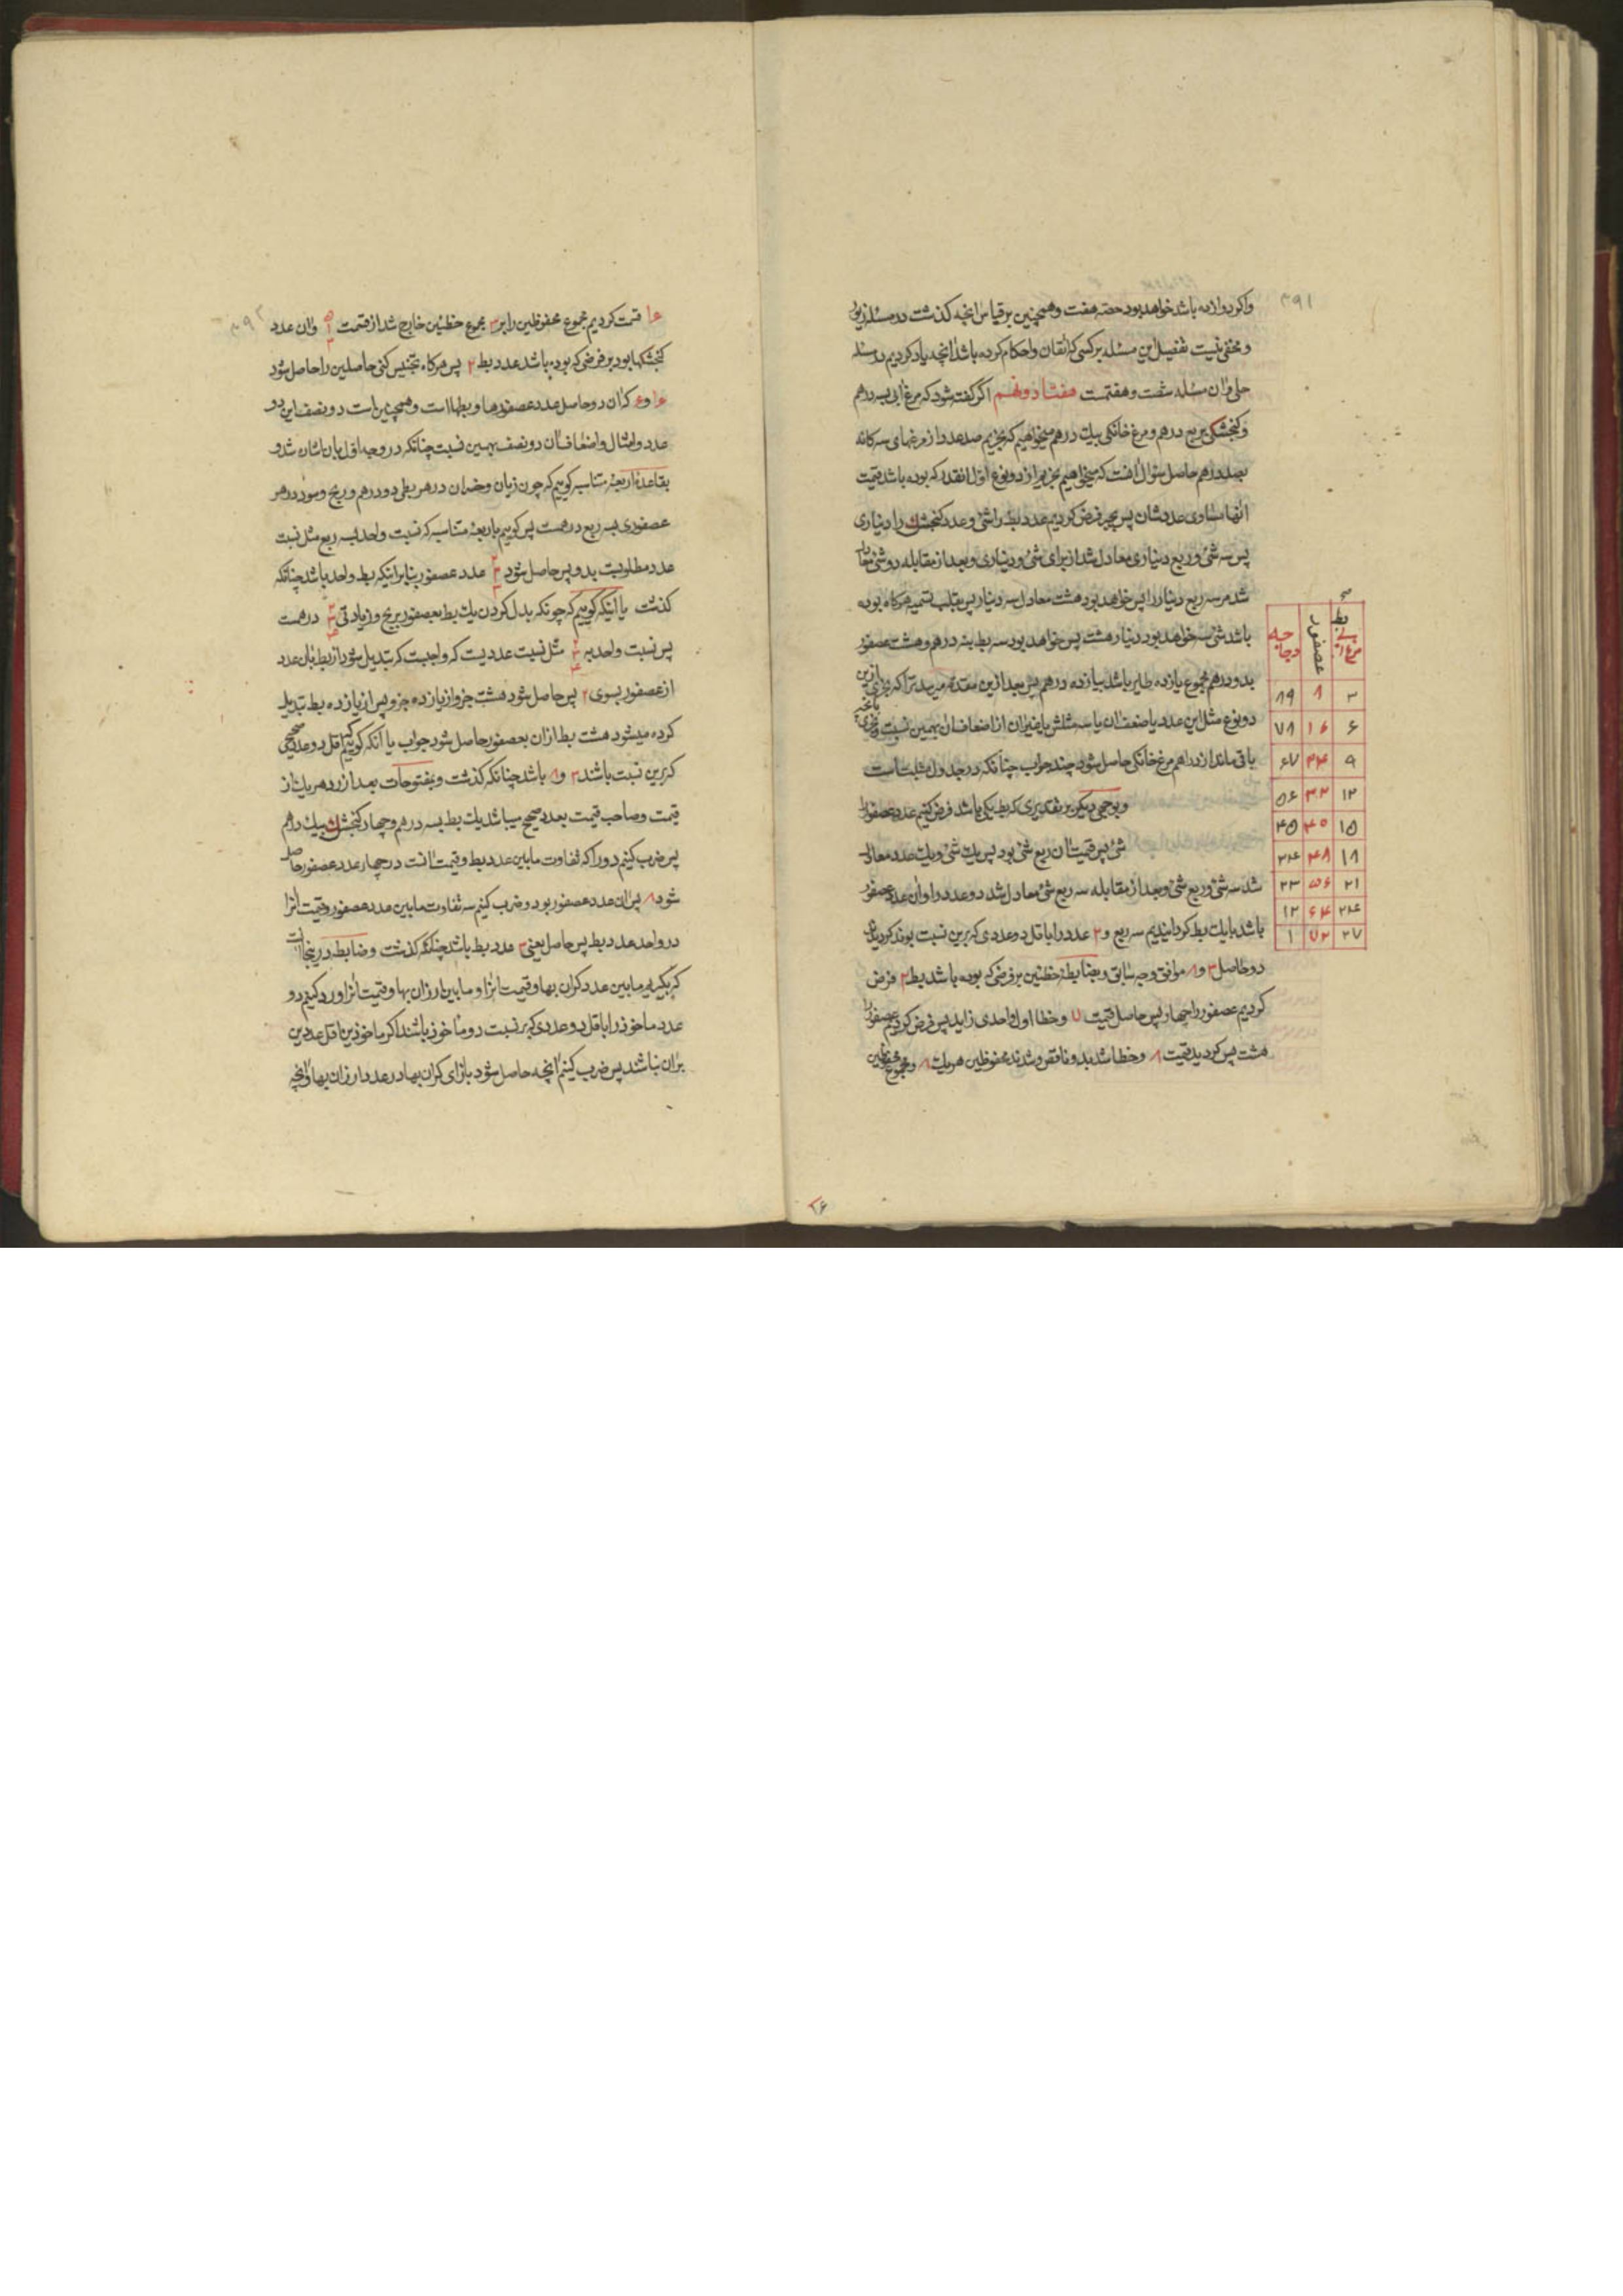 ۳۹۱
واکر دوازده باشد خواهد بود حصه هفت و همچنین بر قیاس انچه کذشت در مسئله
و مخفی نیست تفصیل این مسئله بر کسی که اتقان و احکام کرده باشد انچه یاد کردیم در
حل ان مسئله شصت و هفتمست هفتاد و نهم اکر کفته شود که مرغ ابی بسه درهم
و کنجشکی بربع درهم و مرغ خانکی بیک درهم میخواهیم که بخریم صد عدد از مرغهای سه کانه
بصد درهم حاصل سؤال انست که میخواهیم بخریم از دو نوع اول انقدر که بوده باشد قیمت
انها مساوی عددشان پس بجبر فرض کردیم عدد بط را شئ و عدد کنجشک را دیناری
پس سه شئ و ربع دیناری معادل شد از برای شئ و دیناری و بعد از مقابله دو شئ معادل
شد مر سه ربع دینار را پس خواهد بود هشت معادل سه دینار پس بقلب تسمیه هرکاه بوده
باشد شئ سه خواهد بود دینار هشت پس خواهد بود سه بط بنه درهم و هشت عصفور
بدو درهم مجموع یازده طایر باشد بیازده درهم پس بعد ازین مقدمه میرسد ترا که بخری ازین
دو نوع مثل این عدد یا ضعف ان یا سه مثلش یا غیر ان از اضعاف ان بهمین نسبت و بخری بانچه
باقی ماند از دراهم مرغ خانکی حاصل شود چند جواب چنانکه در جدول مثبت است
و بوجهی دیکر بر تقدیری که بط یکی باشد فرض کنیم عدد عصفور را
شئ پس قیمت ان ربع شئ بود پس یک شئ و یک عدد معادل
شد سه شئ و ربع شئ و بعد از مقابله سه ربع شئ معادل شد دو عدد را و ان عدد عصفور
باشد با یک بط کردانیدیم سه ربع و ۲ عدد را باقل دو عددی که برین نسبت بوند کردید
دو حاصل ۳ و ۸ موافق وجه سابق و بضابطه خطئین بر فرضی که بوده باشد بط ۲ فرض
کردیم عصفور را چهار پس حاصل قیمت ۷ و خطا اول واحدی زاید پس فرض کردیم عصفور را
هشت پس کردید قیمت ۸ و خطا شد بدو ناقص و شدند محفوظین هر یک ۸ و مجموع محفوظین
بط یعنی مرغ ابی	عصفور	دجاجه
۳	۸	۸۹
۶	۱۶	۷۸
۹	۲۴	۶۷
۱۲	۳۲	۵۶
۱۵	۴۰	۴۵
۱۸	۴۸	۳۴
۲۱	۵۶	۲۳
۲۴	۶۴	۱۲
۲۷	۷۲	۱
۲۶
۳۹۲
۱۶ قسمت کردیم مجموع محفوظین را بر ۳ مجموع خطئین خارج شد از قسمت و ان عدد
کنجشکها بود بر فرضی که بوده باشد عدد بط ۲ پس هرکاه تجنیس کنی حاصلین را حاصل شود
۱۶ و ۶ که ان دو حاصل عدد عصفورها و بطها است و همچنین است دو نصف این دو
عدد و امثال و اضعاف ان دو نصف بهمین نسبت چنانکه در وجه اول بان اشان شد و
بقاعده اربعه متناسبه کوییم که چون زیان و خسران در هر بطی دو درهم و ربح و سود در هر
عصفوری بسه ربع درهمست پس کوییم باربعه متناسبه که نسبت واحد بسه ربع مثل نسبت
عدد مطلوبست بدو پس حاصل شود عدد عصفور بنابر اینکه بط واحد باشد چنانکه
کذشت یا اینکه کوییم که چونکه بدل کردن یک بط بعصفور بربح و زیادتی درهمست
پس نسبت واحد به مثل نسبت عددیست که واجبست که تبدیل شود از بط بان عدد
از عصفور بسوی ۲ پس حاصل شود هشت جزو از یازده جزو پس از یازده بط تبدیل
کرده میشود هشت بط از ان بعصفور حاصل شود جواب یا آنکه کوییم اقل دو عدد صحیحی
که برین نسبت باشند ۳ و ۸ باشد چنانکه کذشت و بفتوحات بعد از رد هر یک از
قیمت و صاحب قیمت بعدد صحیح میباشد یک بط بسه درهم و چهار کنجشک بیک درهم
پس ضرب کنیم دو را که تفاوت مابین عدد بط و قیمت انست در چهار عدد عصفور حاصل
شود ۸ پس ان عدد عصفور بود و ضرب کنیم سه تفاوت مابین عدد عصفور و قیمت انرا
در واحد عدد بط پس حاصل یعنی ۳ عدد بط باشد چنانکه کذشت و ضابطه در ینجا انست
که بکیریم مابین عدد کران بها و قیمت انرا و مابین ارزان بها و قیمت انرا و رد کنیم دو
عدد ماخوذ را باقل دو عددی که بر نسبت دو ماخوذ باشند اکر ماخوذین اقل عددین
بران نباشد پس ضرب کنیم انچه حاصل شود بازای کران بها در عدد ارزان بها و انچه